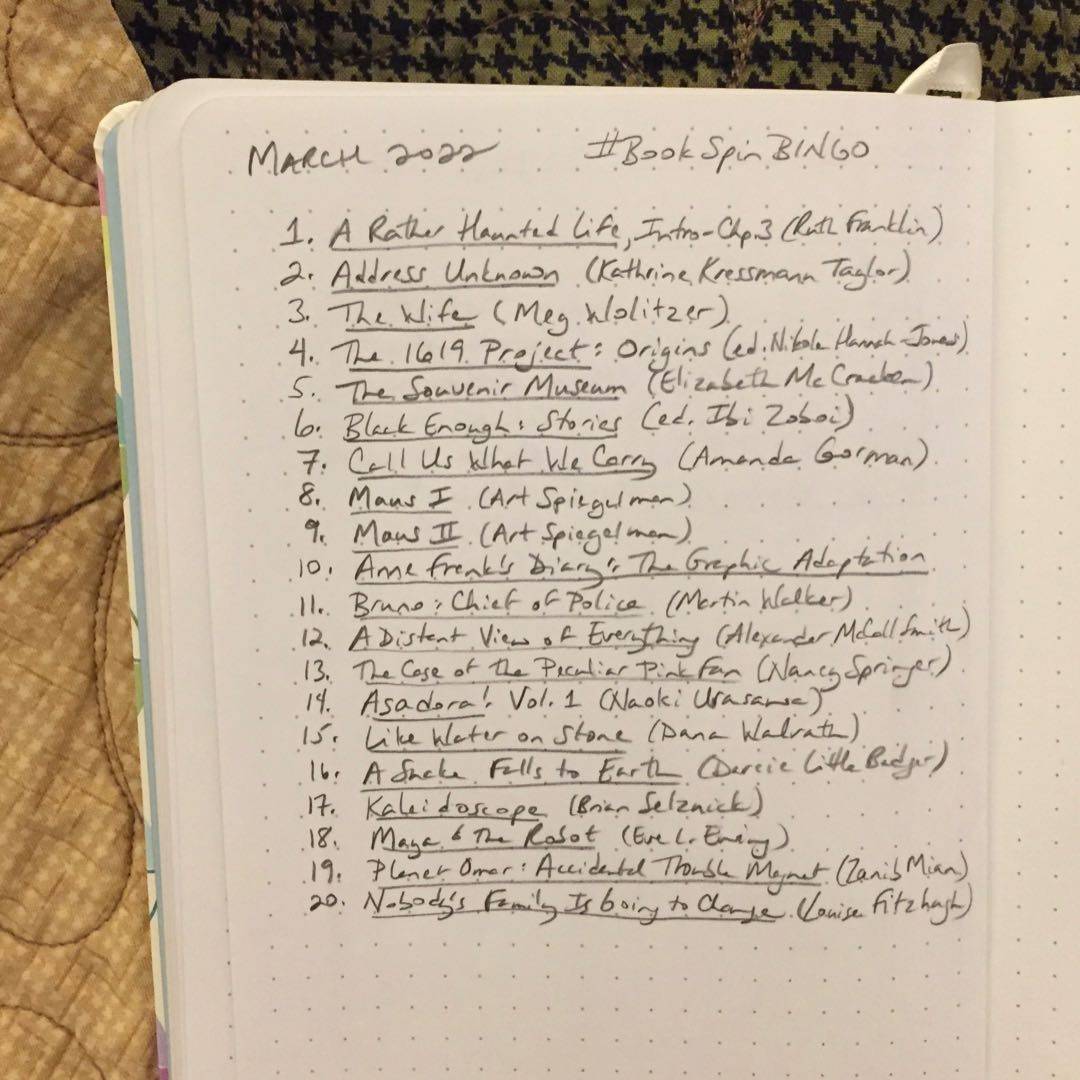 MARCH 2022 #BookSpinBINGO
1. A Rather Haunted Life, Intro-Chp.3 (Ruth Franklin)
2. Address Unknown (Kathrine Kressmann Taylor)
3. The Wife (Meg Wolitzer)
4. The 1619 Project: Origins (ed. Nikole Hannah-Jones)
5. The Souvenir Museum (Elizabeth McCracken)
6. Black Enough: Stories (ed. Ibi Zoboi)
7. Call Us What We Carry (Amanda Gorman)
8. Maus I (Art Spiegelman)
9. Maus II (Art Spiegelman)
10. Anne Frank's Diary: The Graphic Adaptation
11. Bruno: Chief of Police (Martin Walker)
12. A Distant View of Everything (Alexander McCall Smith)
13. The Case of the Peculiar Pink Fan (Nancy Springer)
14. Asadora! Vol. 1 (Naoki Urasawa)
15. Like Water on Stone (Dana Walrath)
16. A Snake Falls to Earth (Darcie Little Badger)
17. Kaleidoscope (Brian Selznick)
18. Maya & The Robot (Eve L. Ewing)
19. Planet Omar: Accidental Trouble Magnet (Zanib Mian)
20. Nobody's Family Is Going to Change (Louise Fitzhugh)